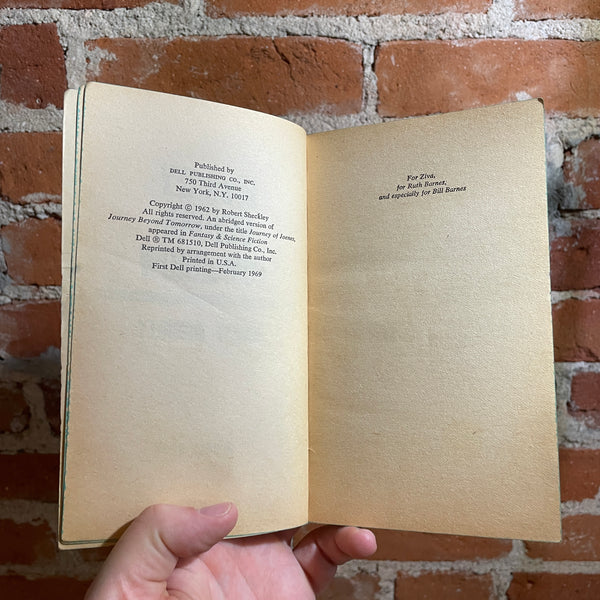 Published by
DELL PUBLISHING CO., INC.
750 Third Avenue
New York, N.Y. 10017
Copyright © 1962 by Robert Sheckley
All rights reserved. An abridged version of
Journey Beyond Tomorrow, under the title Journey of Joenes,
appeared in Fantasy & Science Fiction
Dell ® TM 681510, Dell Publishing Co., Inc.
Reprinted by arrangement with the author
Printed in U.S.A.
First Dell printing—February 1969
For Ziva,
for Ruth Barnes,
and especially for Bill Barnes